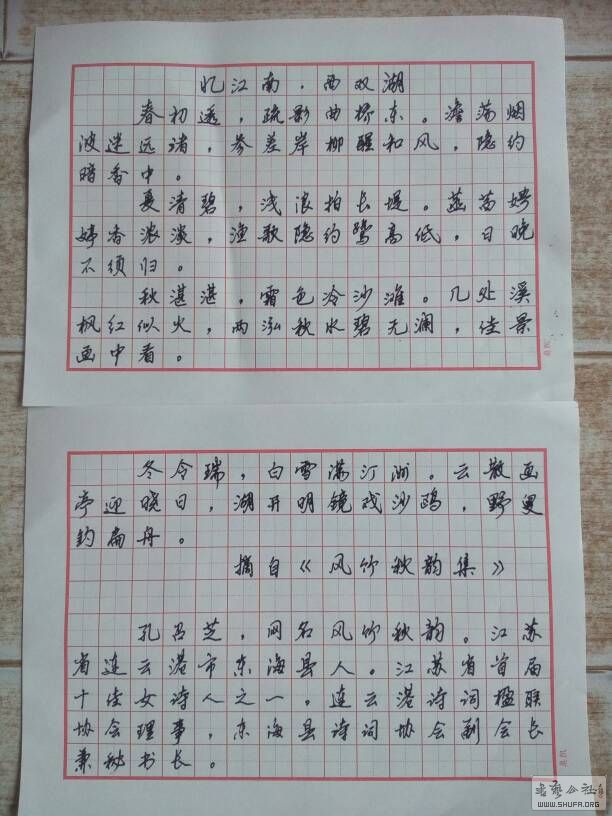 忆江南·西双湖
春初透，疏影曲桥东。澹荡烟
波迷远渚，参差岸柳醒和风，隐约
暗香中。
夏清碧，浅浪拍长堤。菡萏娉
婷香浓淡，渔歌隐约鹭高低，日晚
不须归。
秋湛湛，霜色冷沙滩。几处溪
枫红似火，两泓秋水碧无澜，佳景
画中看。
冬令瑞，白雪满汀洲。云散画
亭迎晓日，湖开明镜戏沙鸥，野叟
钓扁舟。
摘自《风竹秋韵集》
孔召芝，网名风竹秋韵。江苏
省连云港市东海县人。江苏省首届
十佳女诗人之一，连云港诗词楹联
协会理事，东海县诗词协会副会长
兼秘书长。
书艺公社
WWW.SHUFA.ORG